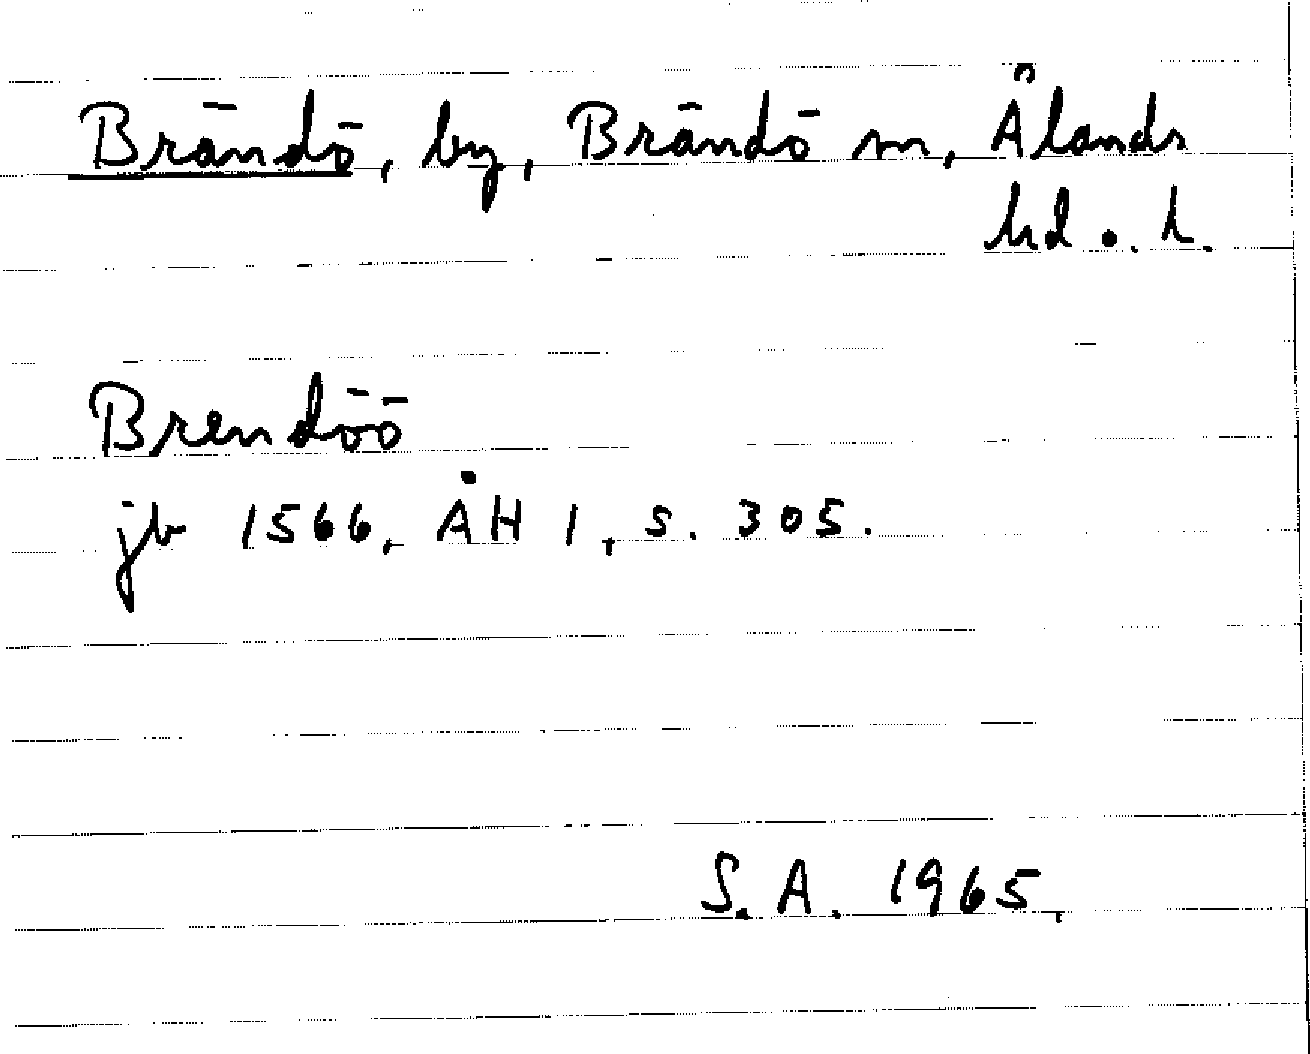 Brändö, by, Brändö sn, Ålands
hd o. l.
Brendöö
jb 1566, ÅH 1, s. 305.
S.A. 1965.